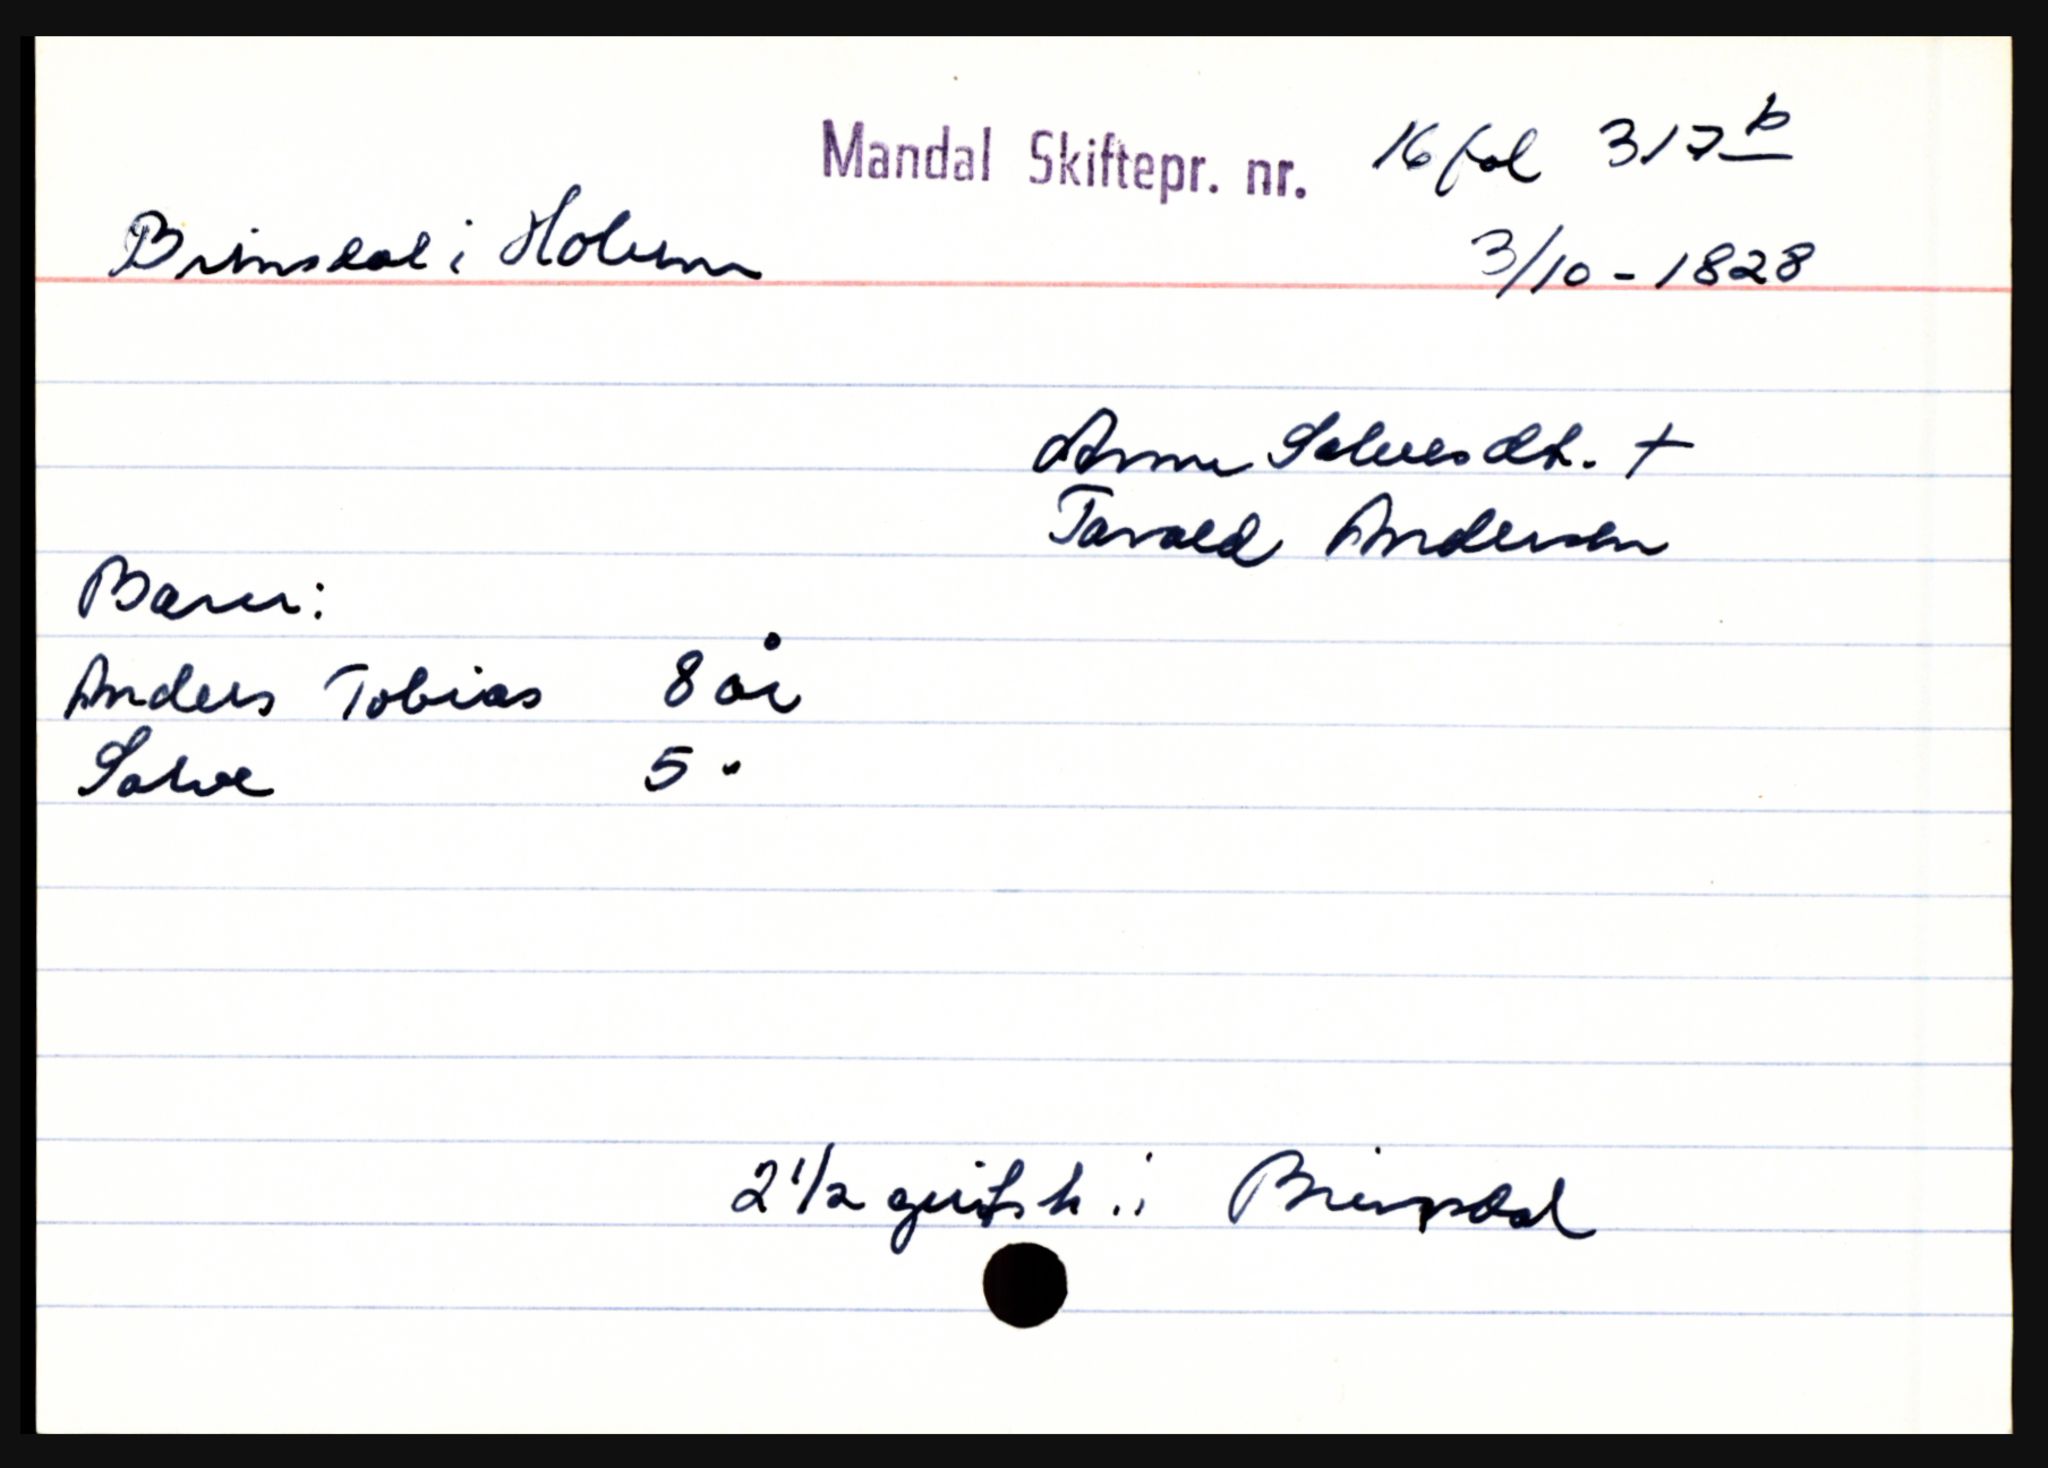 Mandal Skiftepr. nr. 16 fol 317 b
Brinsdal i Holum 3/10 - 1828
Anne Salvesdt. +
Tarald Andersen
Barn:
Anders Tobias 8 år
Salve 5 "
2 1/2 gr i Brinsdal